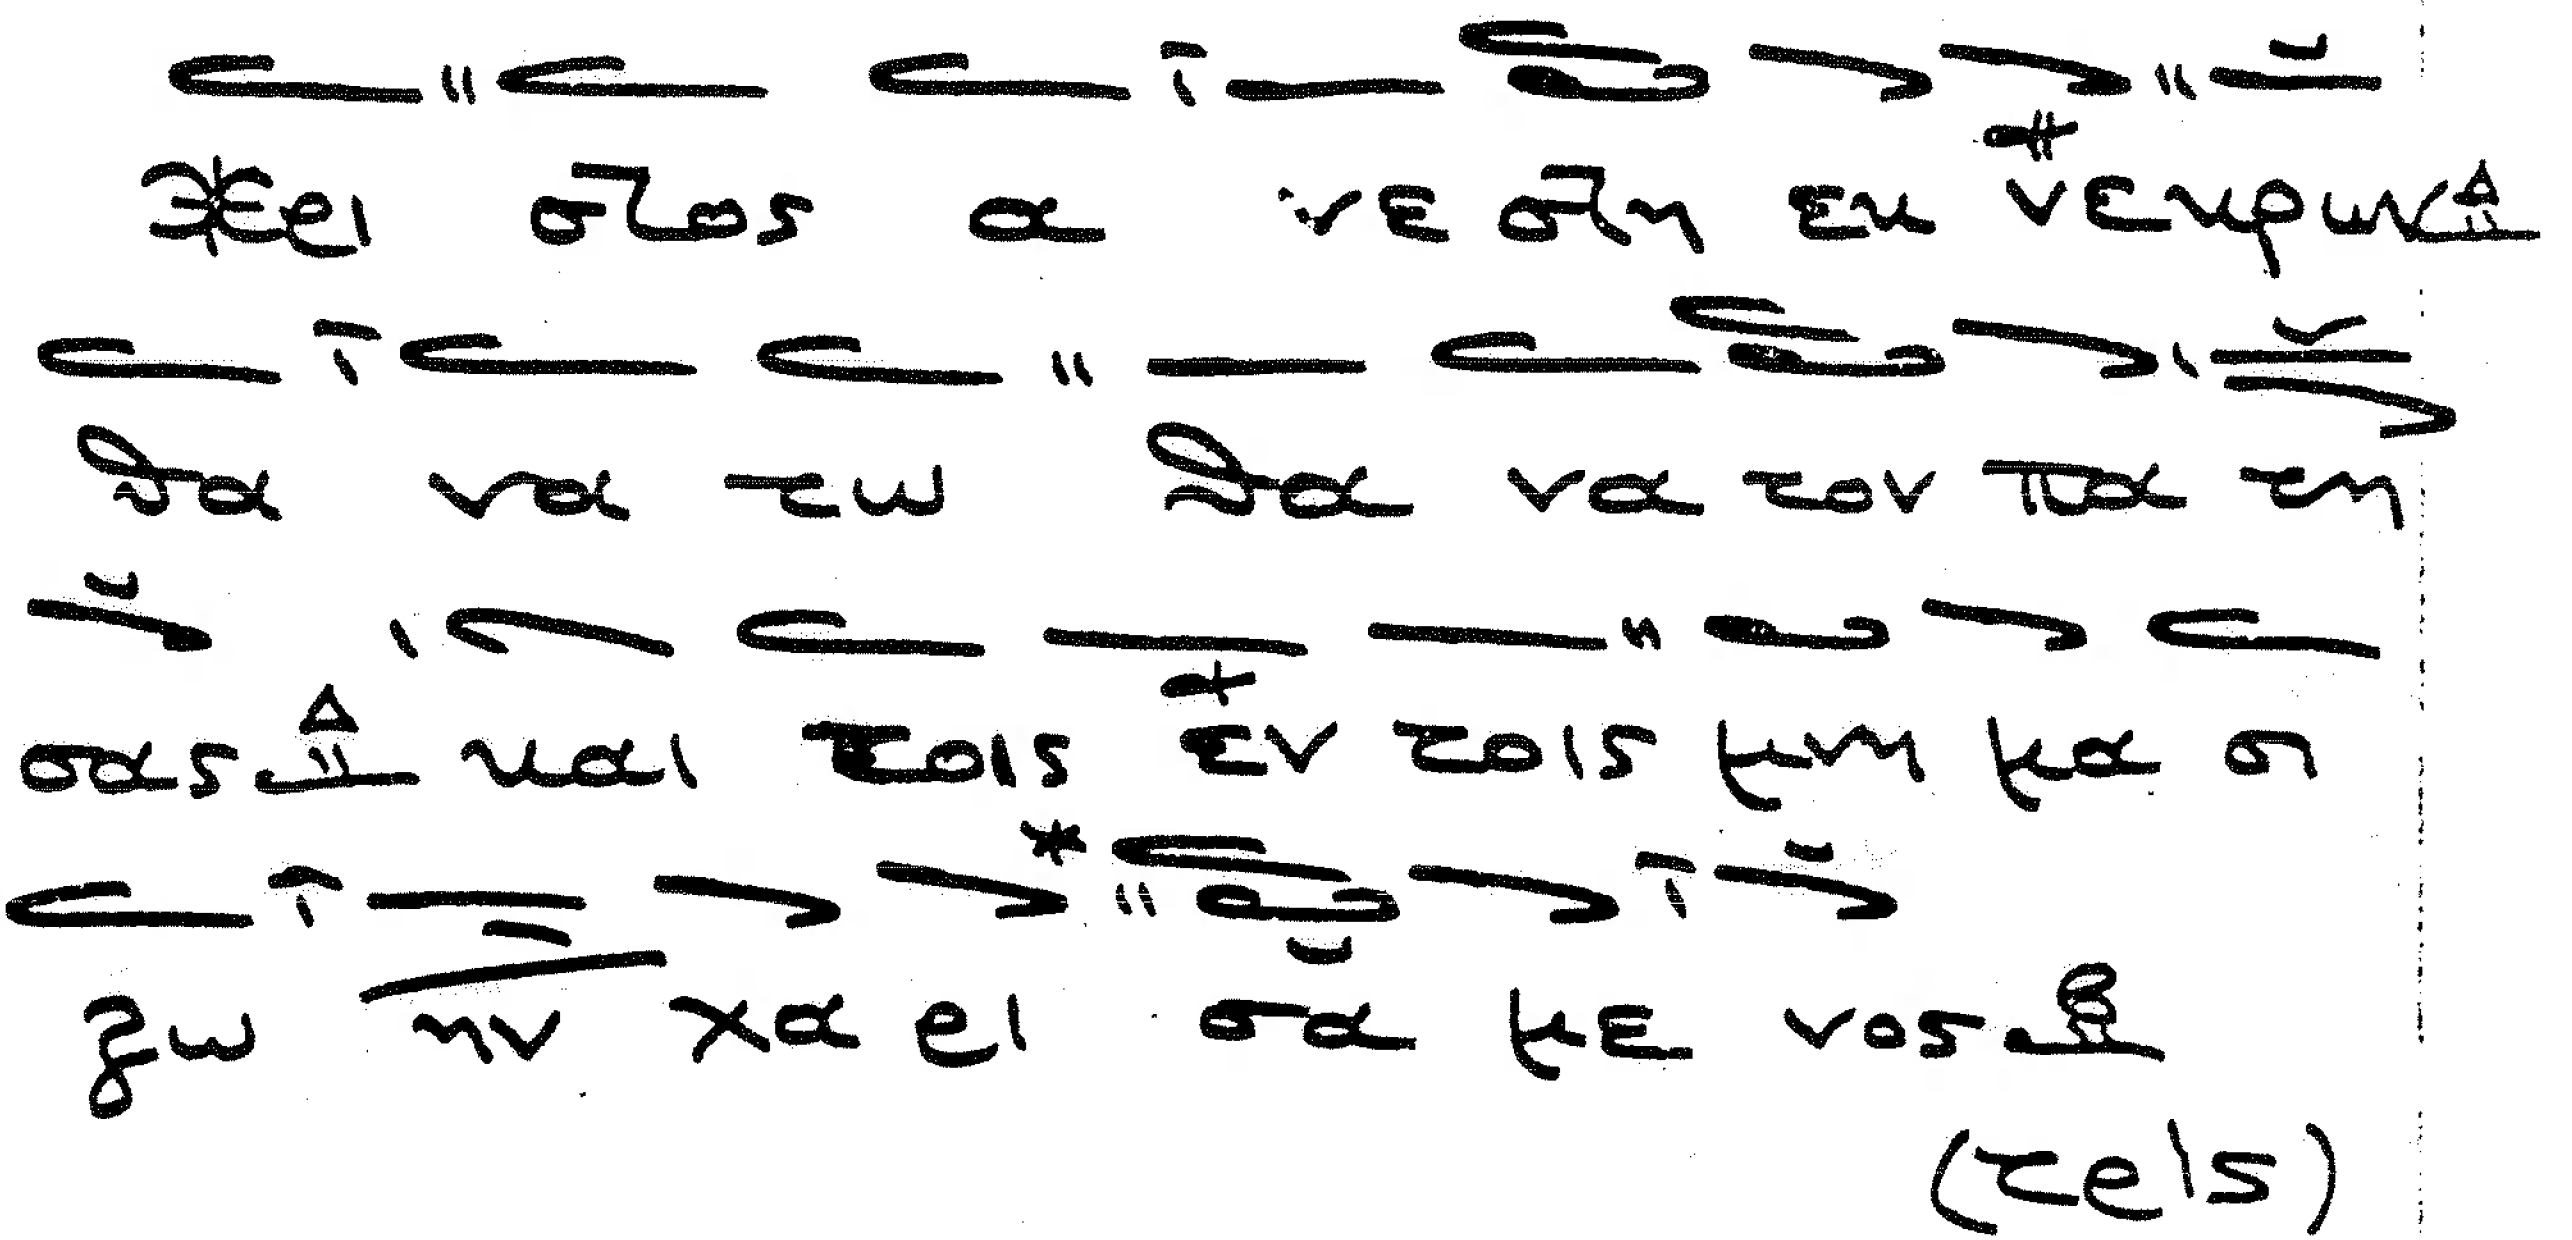 Χει στος α νε στη εκ νεκρων
θα να τω θα να τον πα τη
σας και τοις εν τοις μνη μα σι
ζω ην χα ει σα με νος
(τρις)